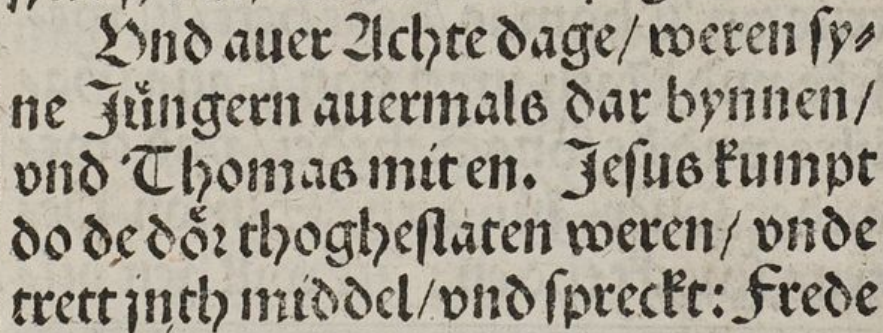 Vnd auer Achte dage/ weren sy⸗
ne Jüngern auermals dar bynnen/
vnd Thomas mit en. Jesus kumpt
do de dör thogheslaten weren/ vnde
trett jnth middel/ vnd spreckt: Frede